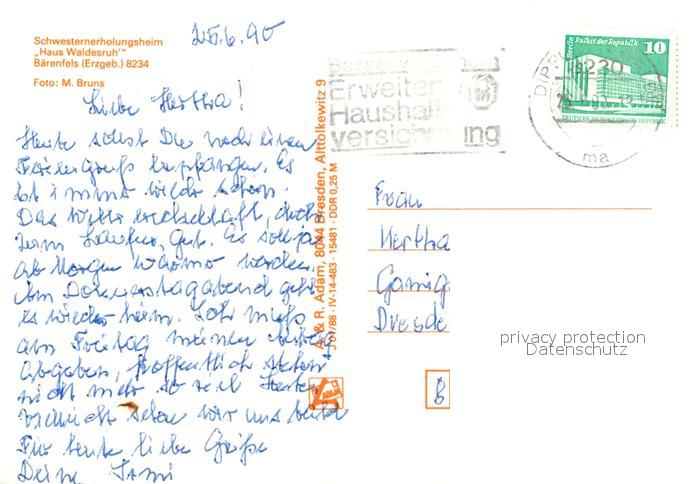 Schwesternerholungsheim
„Haus Waldesruh'"
Bärenfels (Erzgeb.) 8234
Foto: M. Bruns
25.6.90
Liebe Hertha!
Heute sollst Du noch einen
Feriengruß empfangen. Es
ist immer wieder schön.
Das Wetter wechselhaft, doch
zum Laufen, gut. Es soll ja
ab Morgen wärmer werden.
Am Donnerstagabend geht
es wieder heim. Ich muß
am Freitag meinen
abgeben, hoffentlich stehen
nicht mehr so viel
Vielleicht sehen wir uns bald
Für heute liebe Grüße
Deine Irmi
A. & R. Adam, 8044 Dresden, Alttolkewitz 9
J 01/88 · IV-14-483 · 15481 · DDR 0,25 M
ADAM
Erweiterte
Haushalt
versicherung
8230
ma
Berlin Palast der Republik
10
DEUTSCHE DEMOKRATISCHE REPUBLIK
Frau
Hertha
Gamig
Dresde
8
privacy protection
Datenschutz